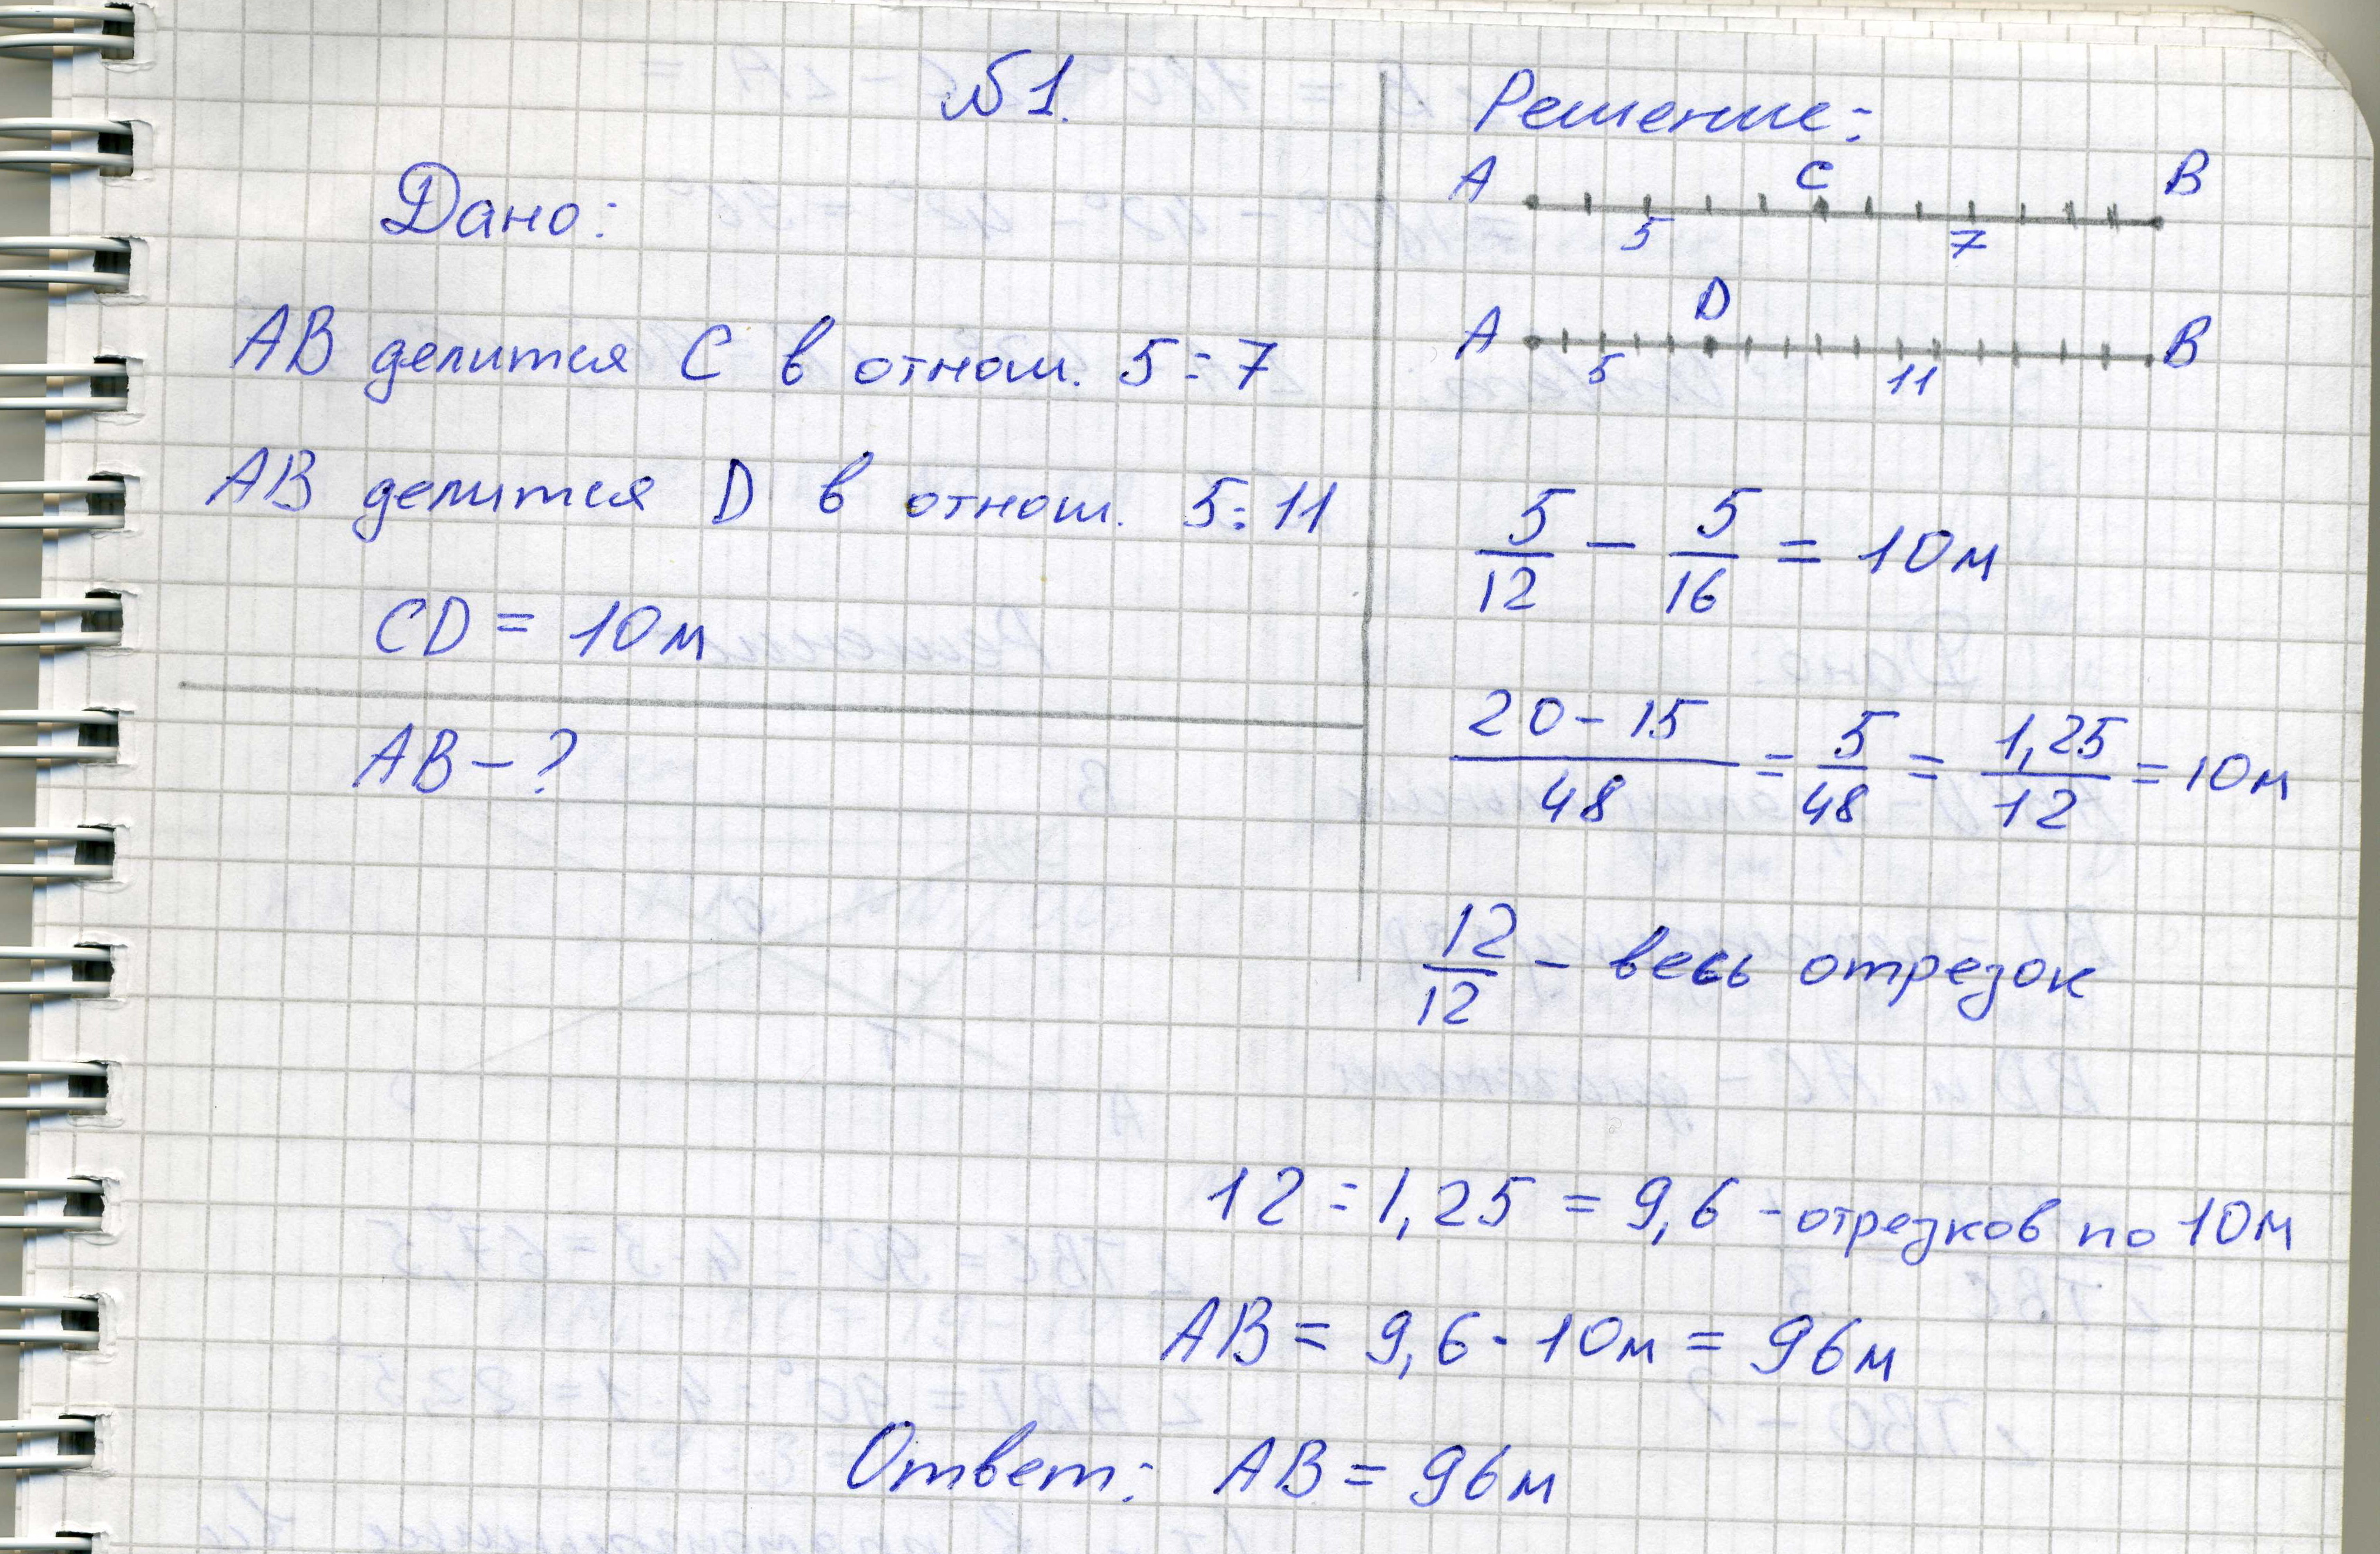 №1.
Дано:
АВ делится С в отнош. 5:7
АВ делится D в отнош. 5:11
CD = 10м
АВ - ?
Решение:
А С В
5 7
А D В
5 11
5/12 - 5/16 = 10м
20-15/48 = 5/48 = 1,25/12 = 10м
12/12 - весь отрезок
12:1,25 = 9,6 - отрезков по 10м
АВ = 9,6 · 10м = 96м
Ответ: АВ = 96м